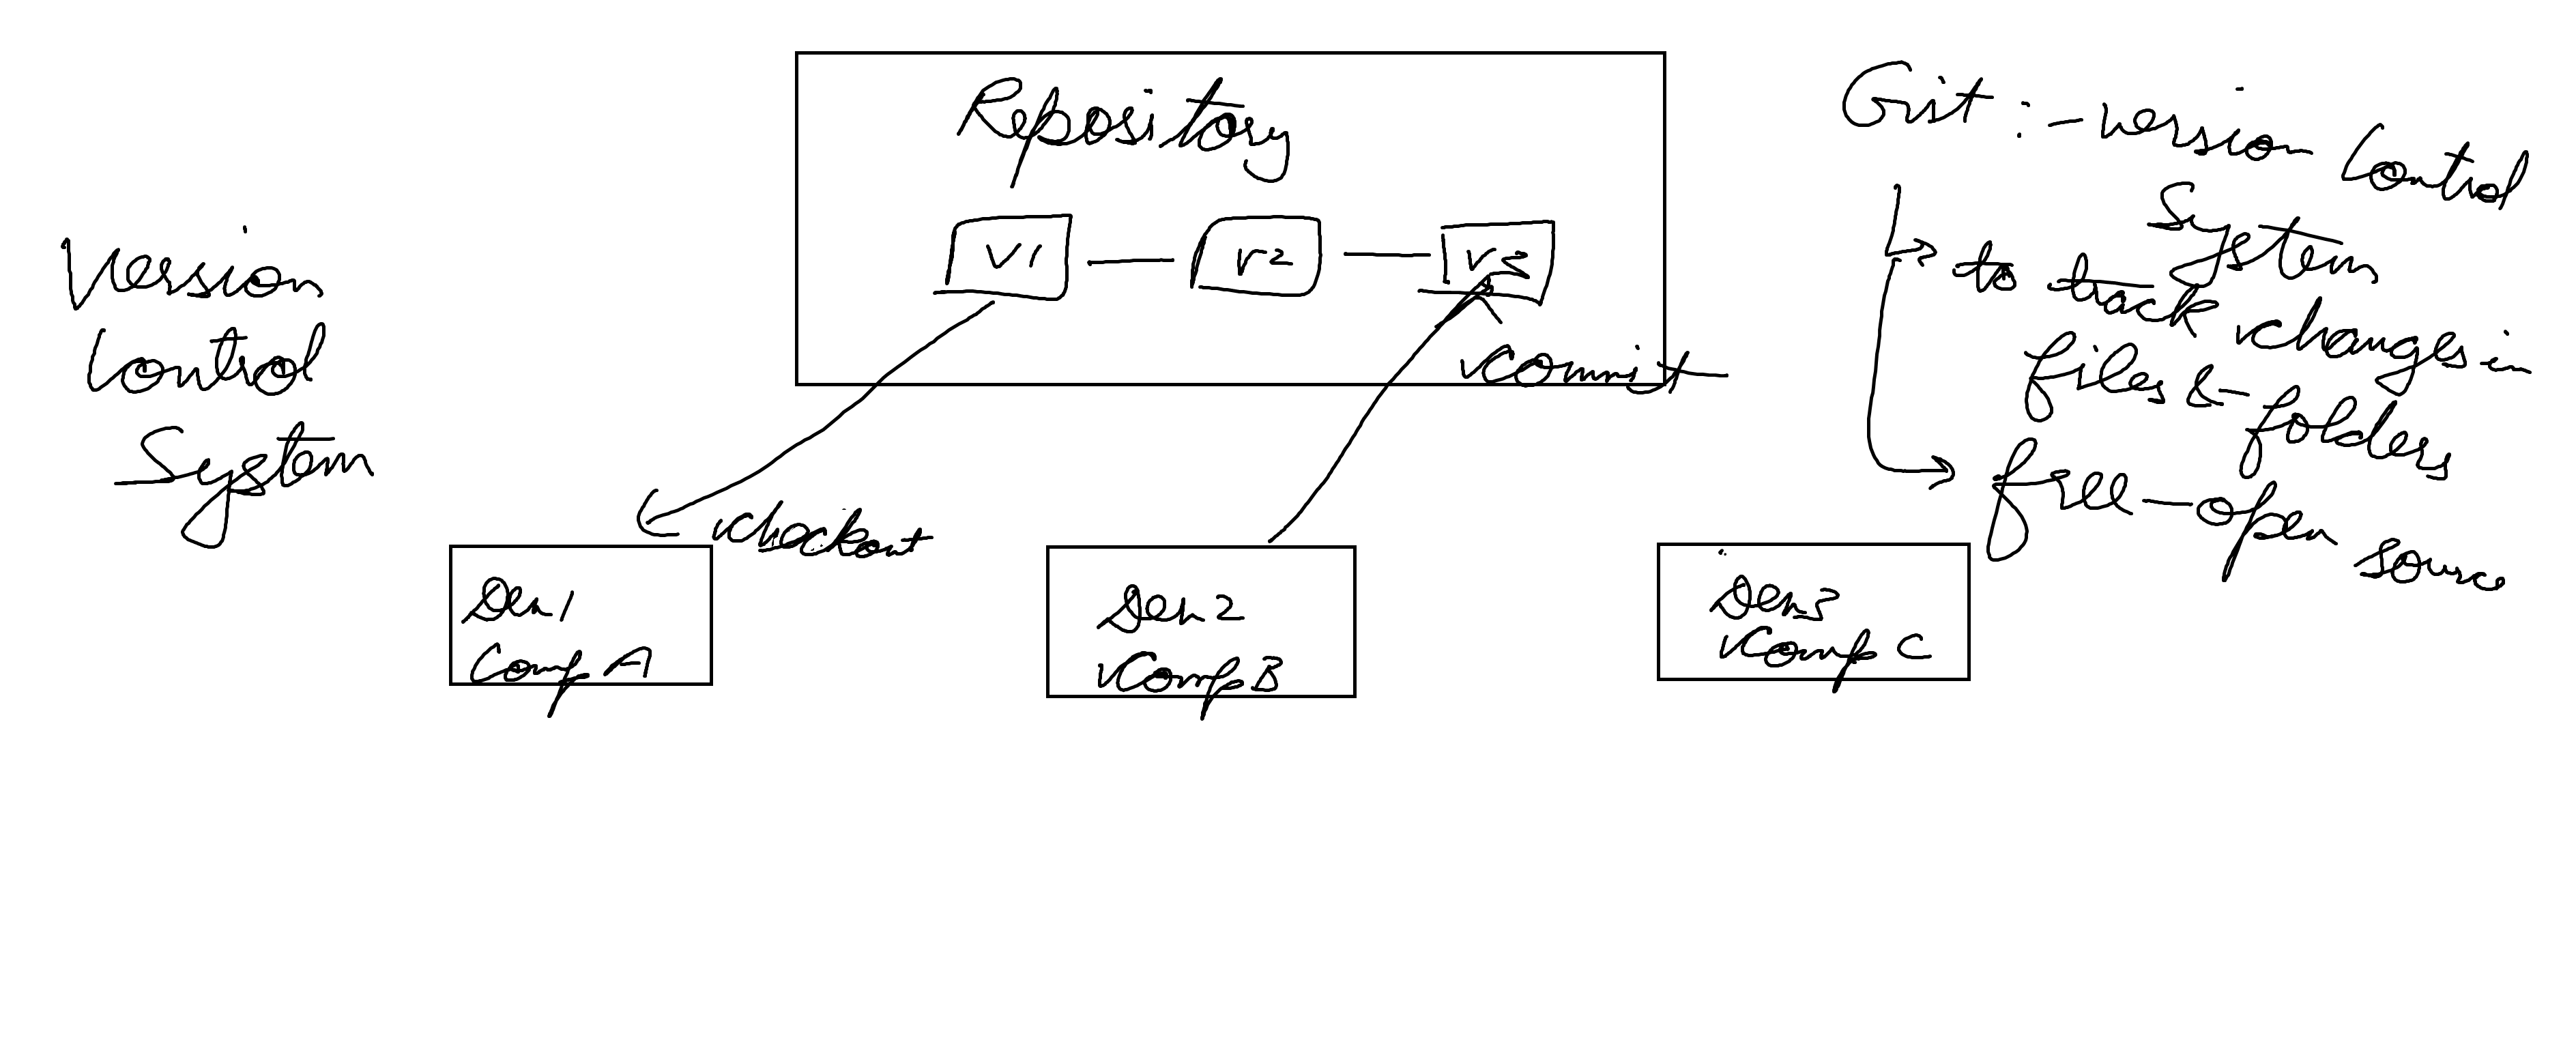 Version
Control
System
Repository
V1
V2
V3
Commit
checkout
Dev 1
Comp A
Dev 2
Comp B
Dev 3
Comp C
Git :- version control
system
to track changes in
files & folders
free - open source